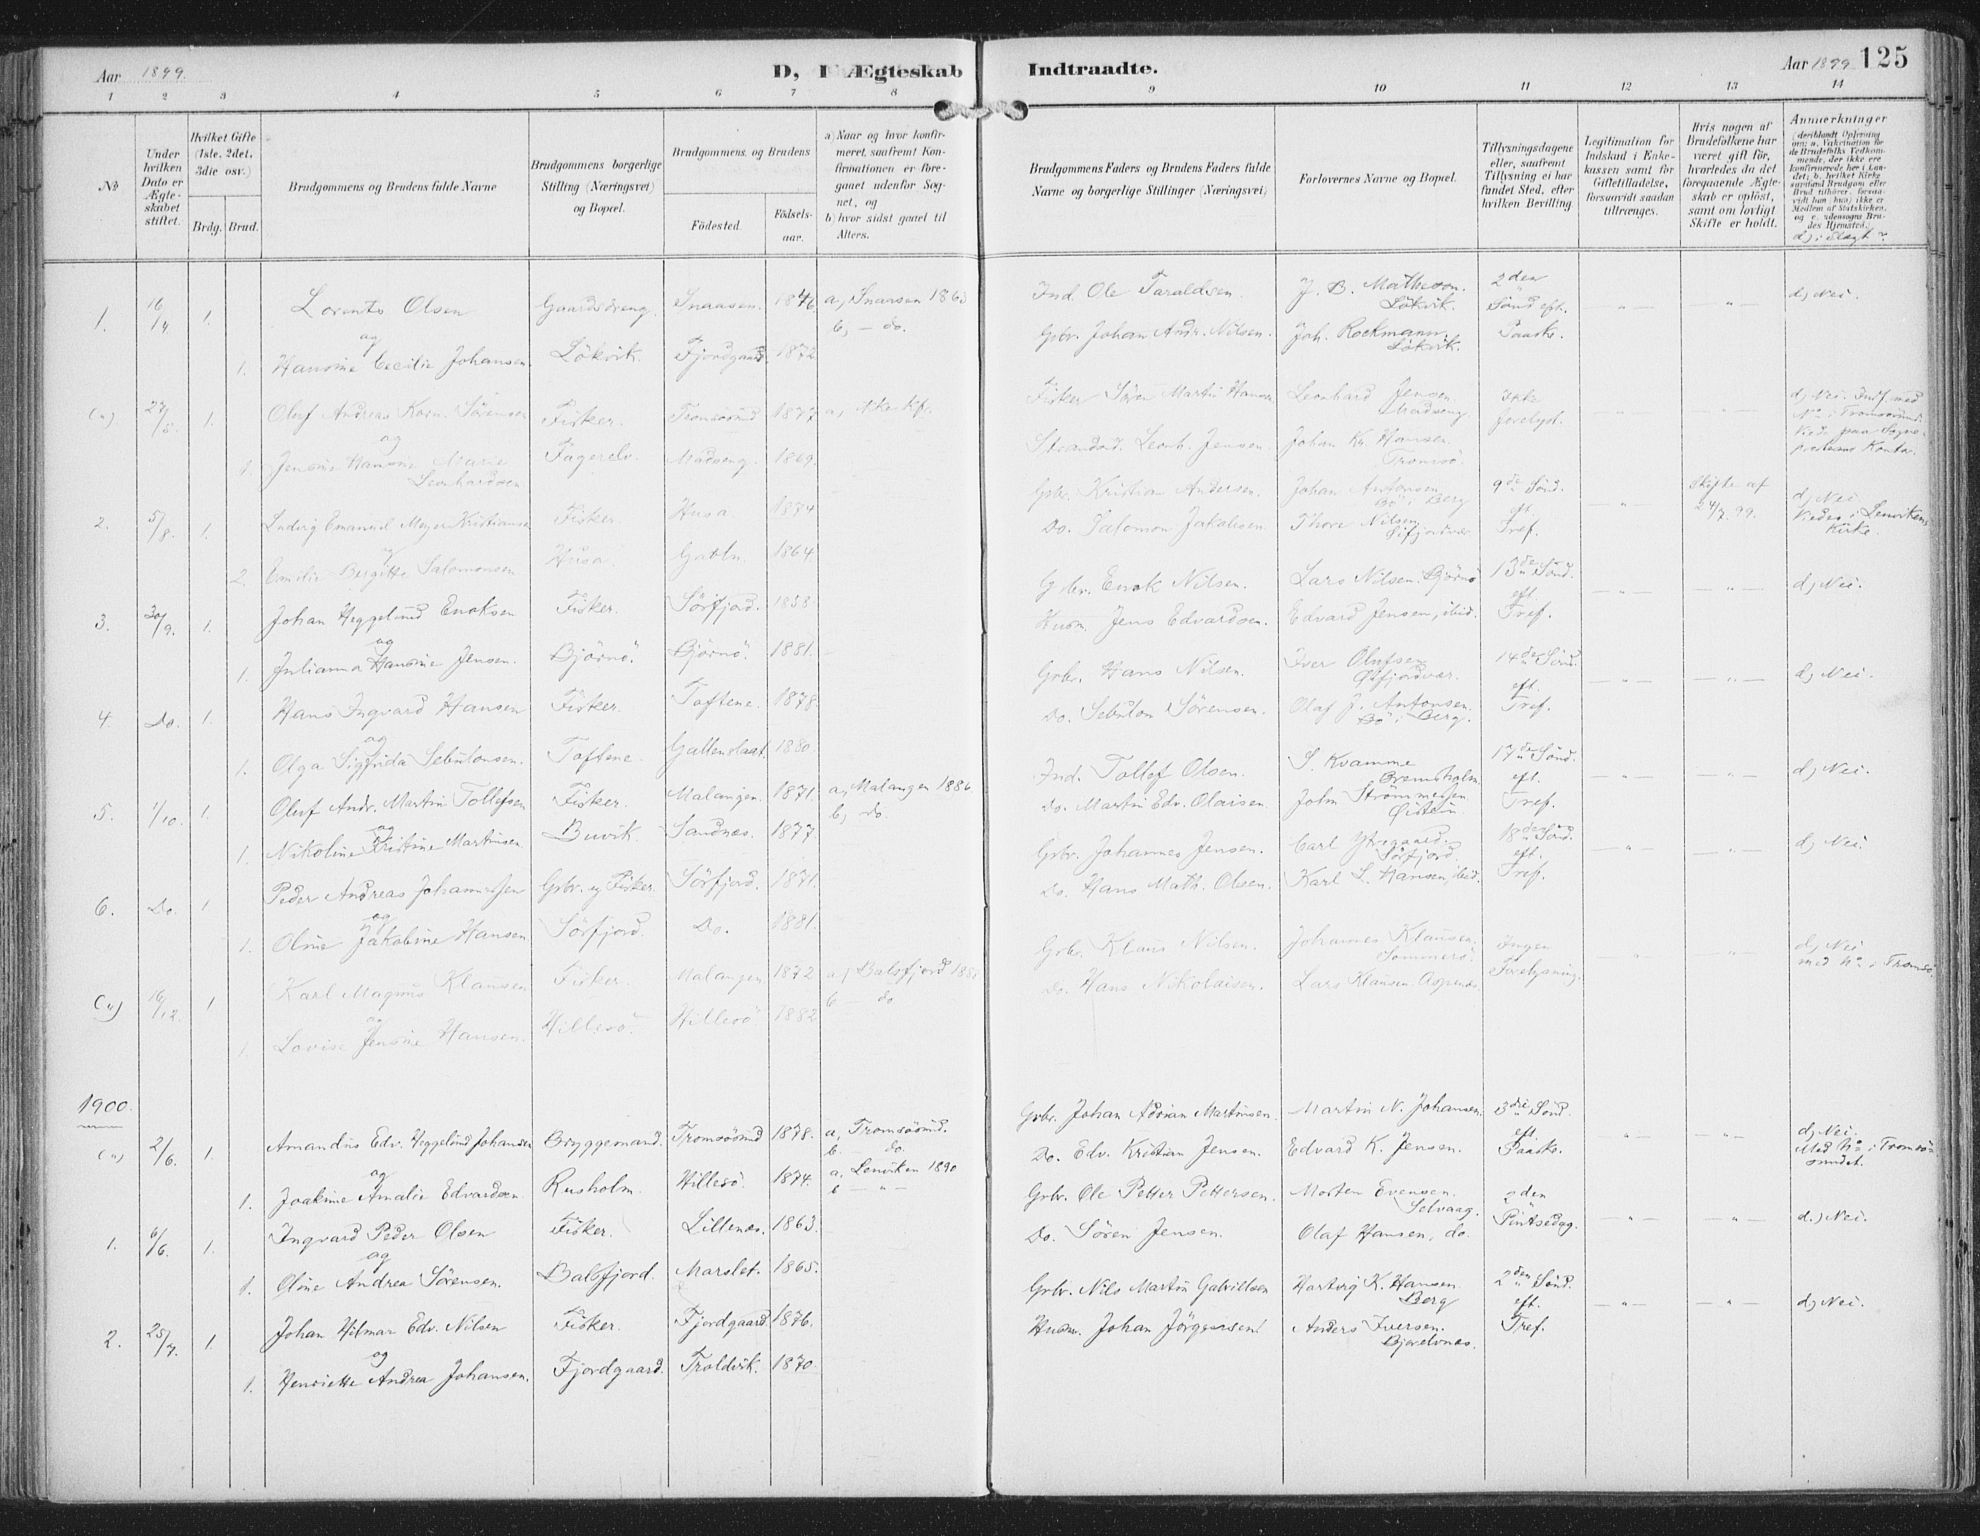 Aar 1899.
D, I Ægteskab
Indtraadte.
Aar 1899
125
1 2 3 4 5 6 7 8 9 10 11 12 13 14
No
Under hvilken Dato er Ægteskabet stiftet.
Hvilket Gifte (1ste, 2det, 3die osv.)
Brdg. Brud.
Brudgommens og Brudens fulde Navne
Brudgommens borgerlige Stilling (Næringsvei) og Bopæl.
Brudgommens og Brudens
Födested.
Födselsaar.
a) Naar og hvor konfirmeret, saafremt Konfirmationen er foregaaet udenfor Sognet, og
b) hvor sidst gaaet til Alters.
Brudgommens Faders og Brudens Faders fulde Navne og borgerlige Stillinger (Næringsvei)
Forlovernes Navne og Bopæl.
Tillysningsdagene eller, saafremt Tillysning ei har fundet Sted, efter hvilken Bevilling
Legitimation for Indskud i Enkekassen samt for Giftetilladelse, forsaavidt saadan tiltrænges.
Hvis nogen af Brudefolkene har været gift för, hvorledes da det foregaaende Ægteskab er oplöst, samt om lovligt Skifte er holdt.
Anmærkninger
d) i Slægt?
1. 16/4 1. Lorents Olsen Gaardsdreng. Snaasen. 1846 a, Snaasen 1863 Ind. Ole Taraldsen J. B. Matheson. Lökvik. 2den Sönd. eft. Paaske. — " — — " — d) Nei.
og b, — do.
1. Hansine Cecilie Johansen. Lökvik. Fjordgaard. 1872 Gbr. Johan Andr. Nilsen. Joh. Rockmann. Lökvik.
(u) 27/5. 1. Oluf Andreas Korn. Sörensen Fisker. Tromsösund 1877 a, ikke kfr. Fisker Sören Martin Hansen Leonhard Jensen Madseng. Ikke forelyst. — " — — " — d) Nei. Indf. med No i Tromsösund. Viede paa Sognepræstens Kontor.
og
1. Jensine Hansine Marie Leonhardsen Fagerelv. Madseng. 1869. Strandsd. Leonh. Jensen. Johan Kr. Hansen. Tromsö.
2. 5/8. 1. Ludvig Emanuel Meyer Kristiansen Fisker. Husa. 1874 Gbr. Kristian Andersen. Johan Antonsen Bö i Berg 9de Sönd. eft. Tref. — " — Skifte af 24/7. 99. d) Nei. Viedes i Lenvikens Kirke.
og
2. Emilie Bergitte Salomonsen Husa. Gabln. 1864. Do. Salomon Jakobsen. Thore Nilsen Öifjordvær.
3. 30/9. 1. Johan Heggelund Enoksen Fisker. Sörfjord. 1858. Gbr. Enok Nilsen. Lars Nilsen. Björnö 13de Sönd. eft. Tref. — " — — " — d) Nei.
og
1. Julianna Hansine Jensen. Björnö. Björnö. 1881. Husm. Jens Edvardsen. Edvard Jensen, ibid.
4. Do. 1. Hans Ingvard Hansen Fisker. Toftene. 1878. Gbr. Hans Nilsen. Iver Olufsen Öifjordvær. 14de Sönd. eft. Tref. — " — — " — d) Nei.
og
1. Olga Sigfrida Sebulonsen. Toftene. Galtenslaat. 1880. Do. Sebulon Sörensen. Olaf J. Antonsen. Bö i Berg.
5. 1/10. 1. Oluf Andr. Martin Tollefsen Fisker. Malangen. 1871. a, Malangen 1886 Ind. Tollef Olsen. S. Kvamme Gremsholm. 17de Sönd. eft. Tref. — " — — " — d) Nei.
og b, do.
1. Nikoline Kristine Martinsen. Buvik. Sandnes. 1877. Do. Martin Edv. Olaisen. John Strömmesen Öistein.
6. Do. 1. Peder Andreas Johannessen Gbr. og Fisker. Sörfjord. 1871. Gbr. Johannes Jensen. Carl Ytregaard. Sörfjord. 18de Sönd. eft. Tref. — " — — " — d) Nei.
og
1. Oline Jakobine Hansen Sörfjord. Do. 1881. Do. Hans Math. Olsen. Karl L. Hansen, ibid.
(u) 16/12. 1 Karl Magnus Klausen Fisker. Malangen 1872 a, Balsfjord Gbr. Klaus Nilsen. Johannes Klausen. Sommerö. Ingen Forelysning. — " — — " — d) Nei med No i Tromsö
og b — do
1. Lovise Jensine Hansen. Hillesö. Hillesö 1882 Do. Hans Nikolaisen. Lars Klausen. Aspenes
1900.
(u) 2/6. 1. Amandus Edv. Heggelund Johansen Bryggemand. Tromsösund 1878. a, Tromsösund. Gbr. Johan Adrian Martinsen. Martin N. Johansen. 3die Sönd. eft. Paaske. — " — — " — d) Nei. Med No i Tromsösundet.
og b. — do.
1. Joakime Amalie Edvardsen. Rusholm. Hillesö. 1874. a, Lenviken 1890 b — " — Do. Edv. Kristian Jensen. Edvard K. Jensen.
1. 6/6. 1. Ingvard Peder Olsen Fisker. Lillenæs. 1863. Gbr. Ole Petter Pettersen. Morten Evensen. Selvaag. 2den Pintsedag. — " — — " — d.) Nei.
og
1. Oline Andrea Sörensen. Balsfjord. Marslet. 1865. Do. Sören Jensen. Olaf Hansen, do.
2. 25/7. 1. Johan Hilmar Edv. Nilsen Fisker. Fjordgaard. 1876. Gbr. Nils Martin Gabrielsen Hartvig K. Hansen. Berg 2den Sönd. eft. Tref. — " — — " — d) Nei.
og
1. Henriette Andrea Johansen. Fjordgaard. Troldvik. 1870. Husm. Johan Jörgensen Anders Iversen. Bjorelvnes.